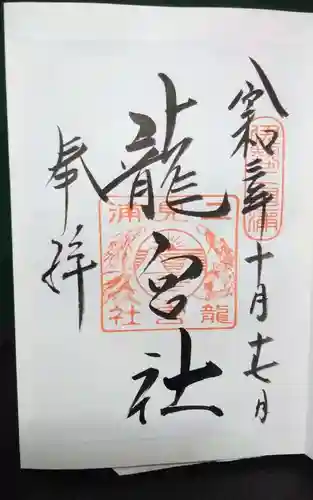 令和三年十月十七日
龍宮社
奉拝
二見浦
龍宮社